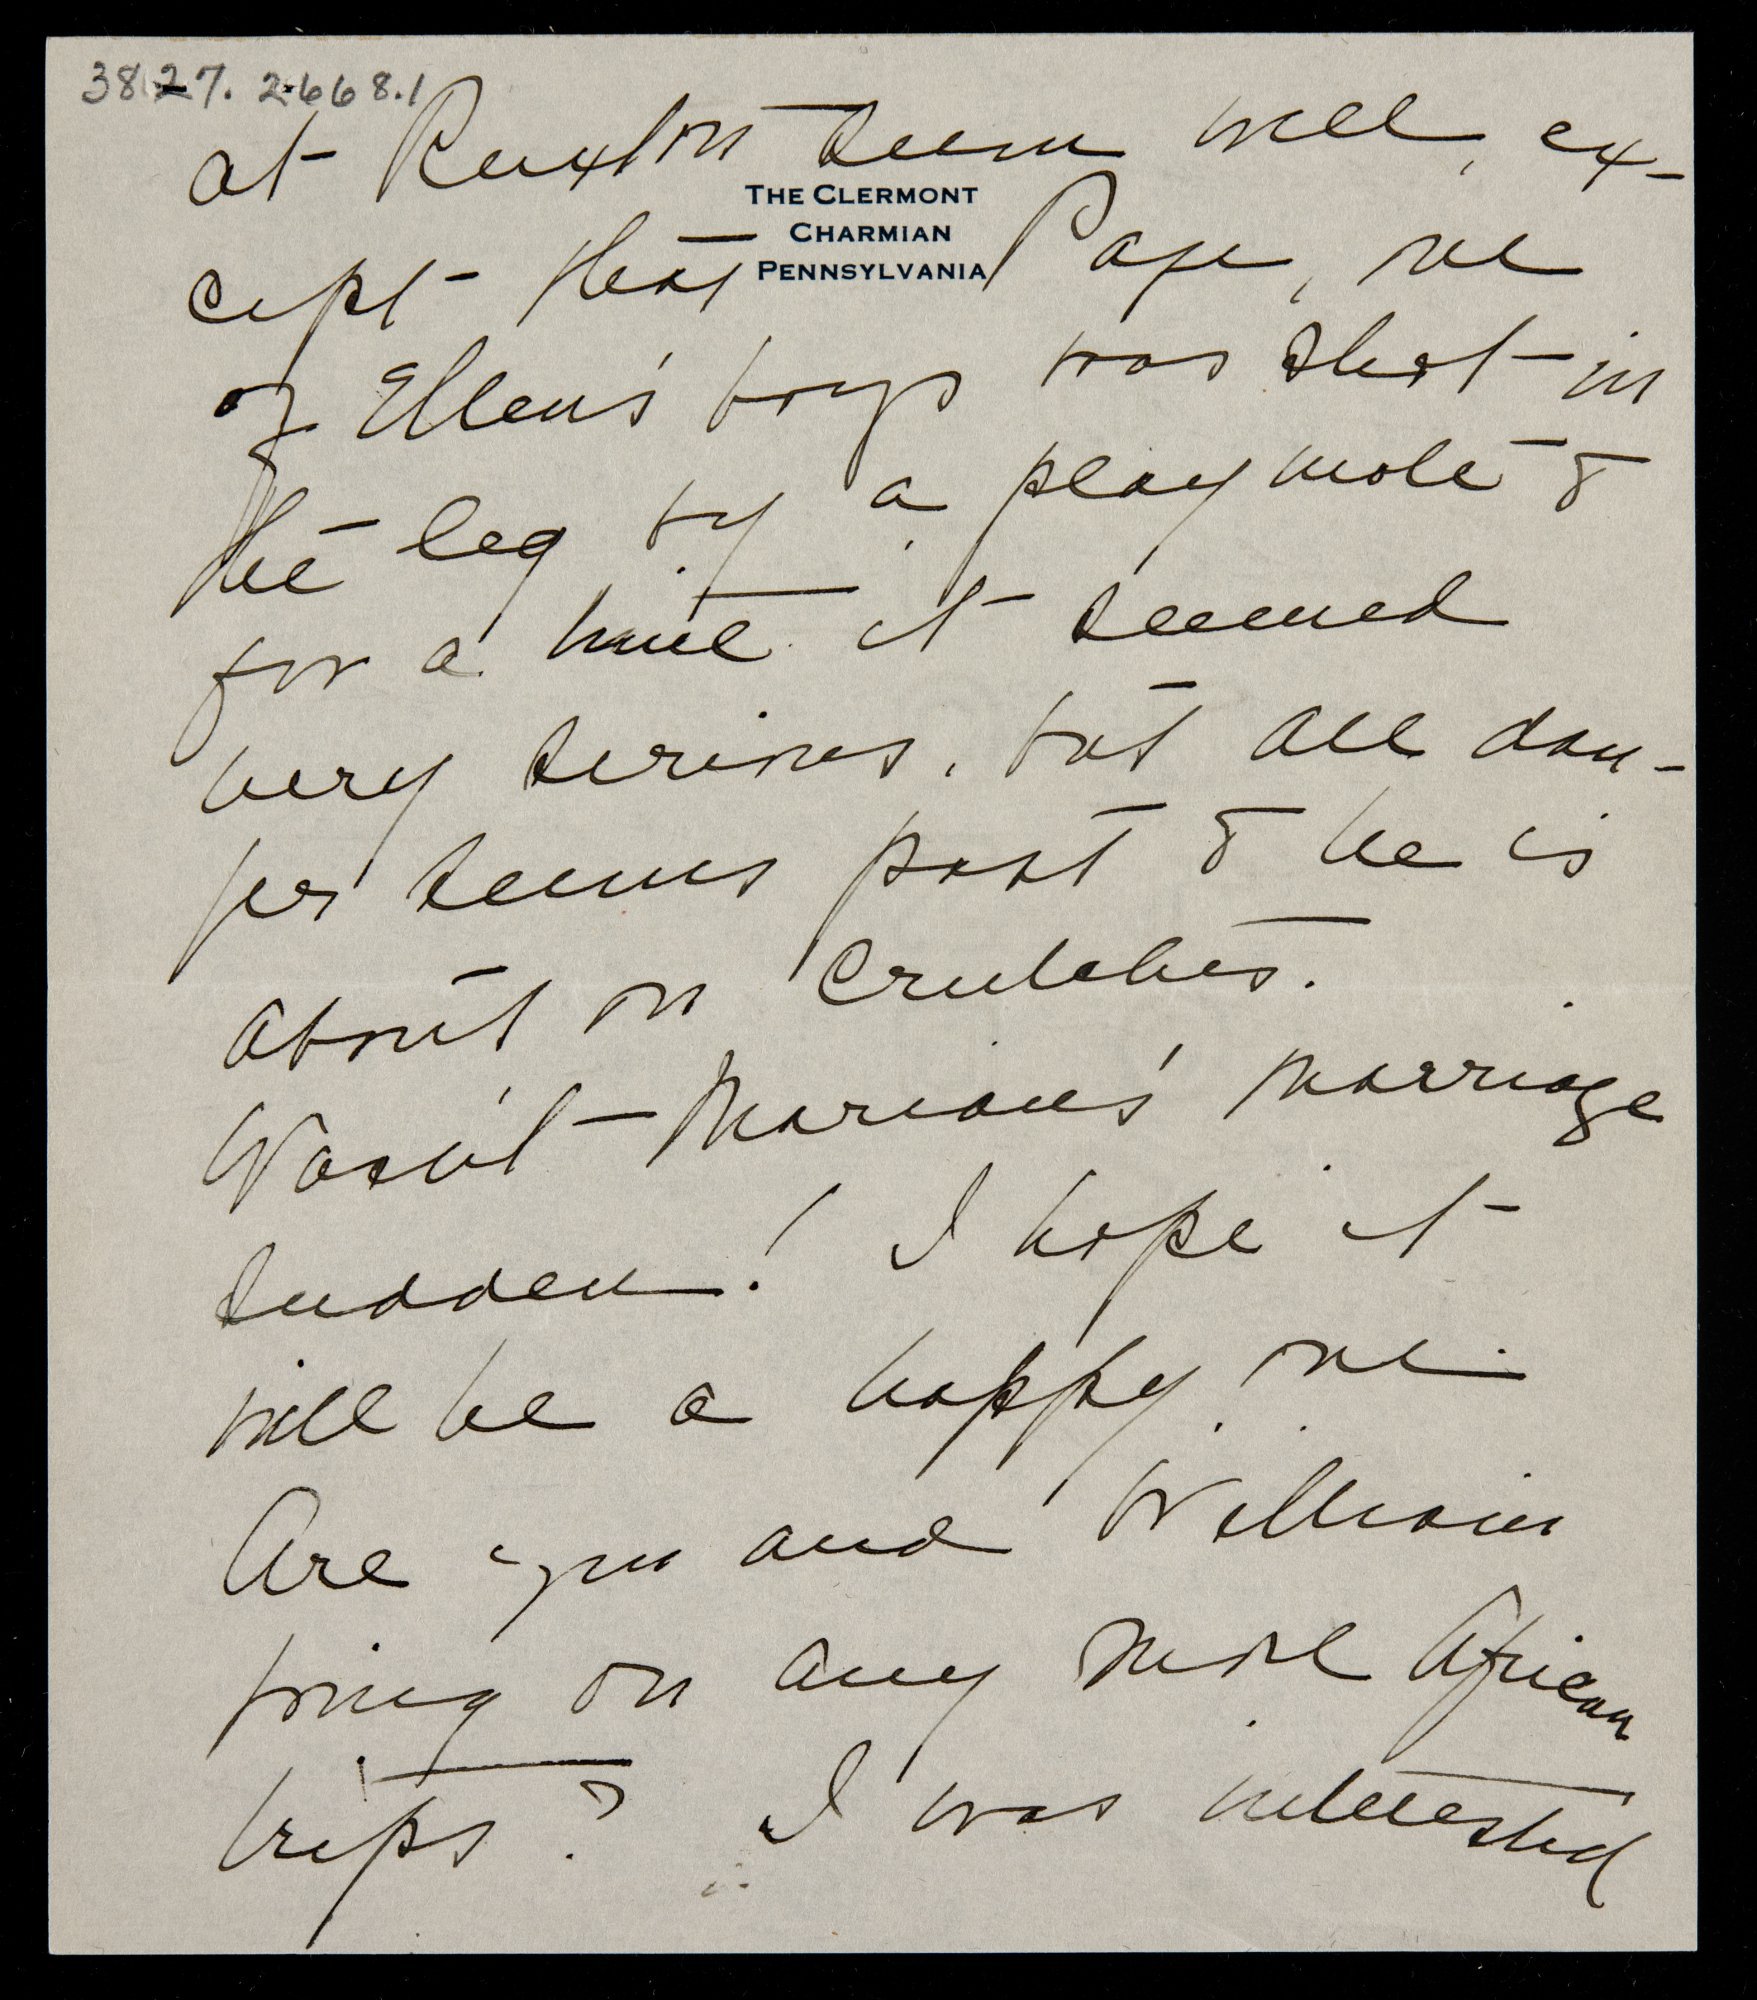 3827.2668.1
at Ruxton seem well, ex-
THE CLERMONT
CHARMIAN
PENNSYLVANIA
cept that Page, one
of Ellen's boys was shot in
the leg by a playmate &
for a time it seemed
very serious, but all dan-
ger seems past & he is
about on crutches.
Wasn't Marian's marriage
sudden! I hope it
will be a happy one.
Are you and William
going on any more African
trips? I was interested